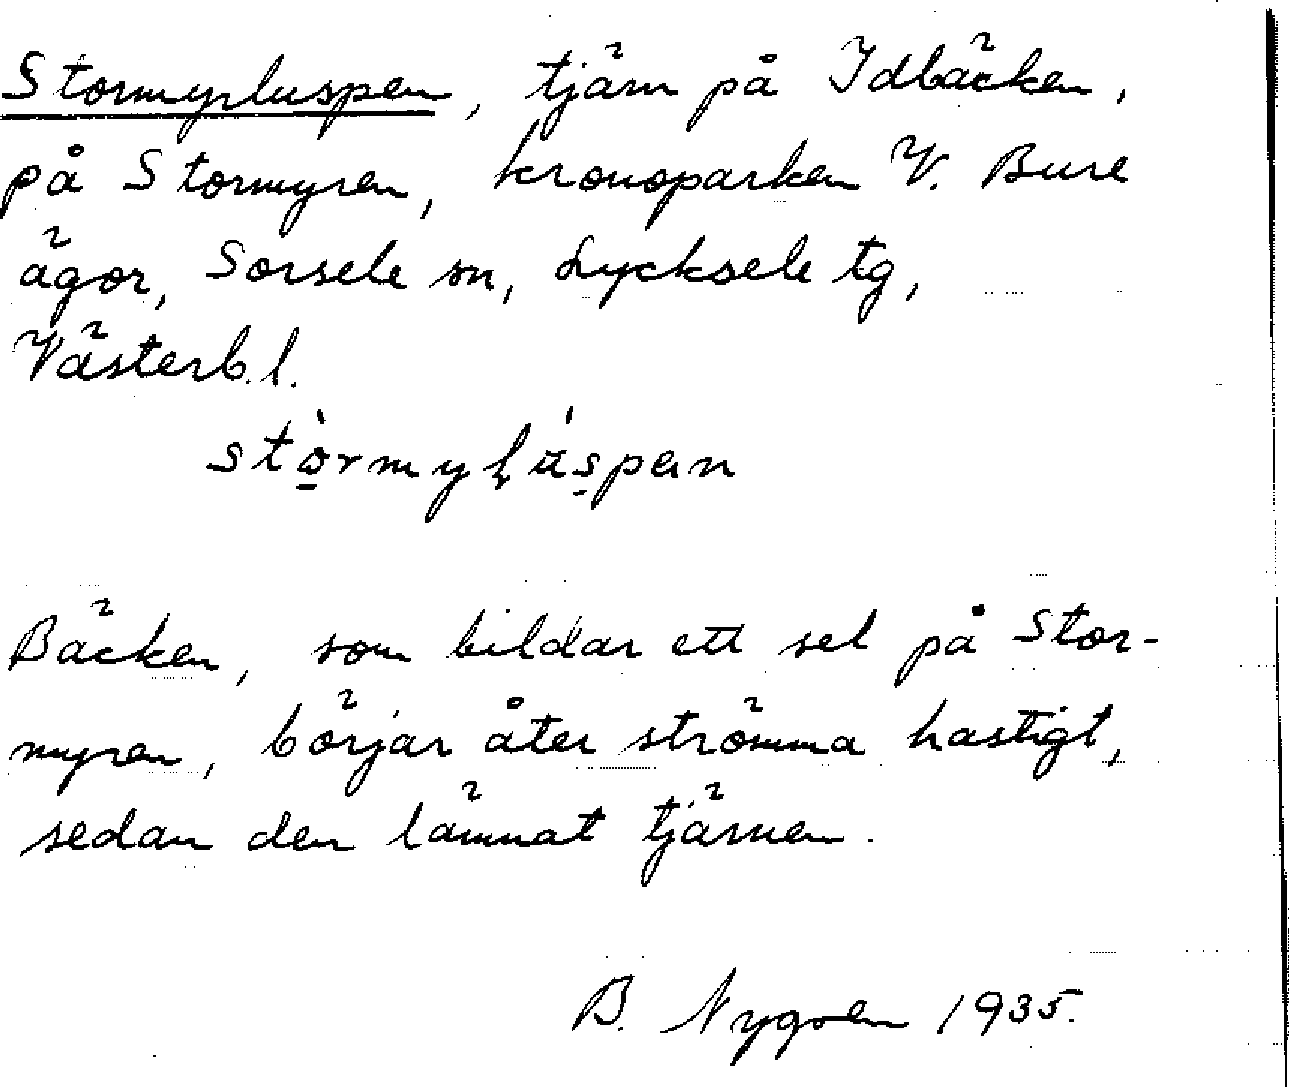 Stormyrluspen, tjärn på Idbäcken,
på Stormyren, kronoparken V. Bure
ägor, Sorsele sn, Lycksele tg,
Västerb.l.
stòrmylúspen
Bäcken, som bildar ett sel på Stor-
myren, börjar åter strömma hastigt,
sedan den lämnat tjärnen.
B. Nygren 1935.